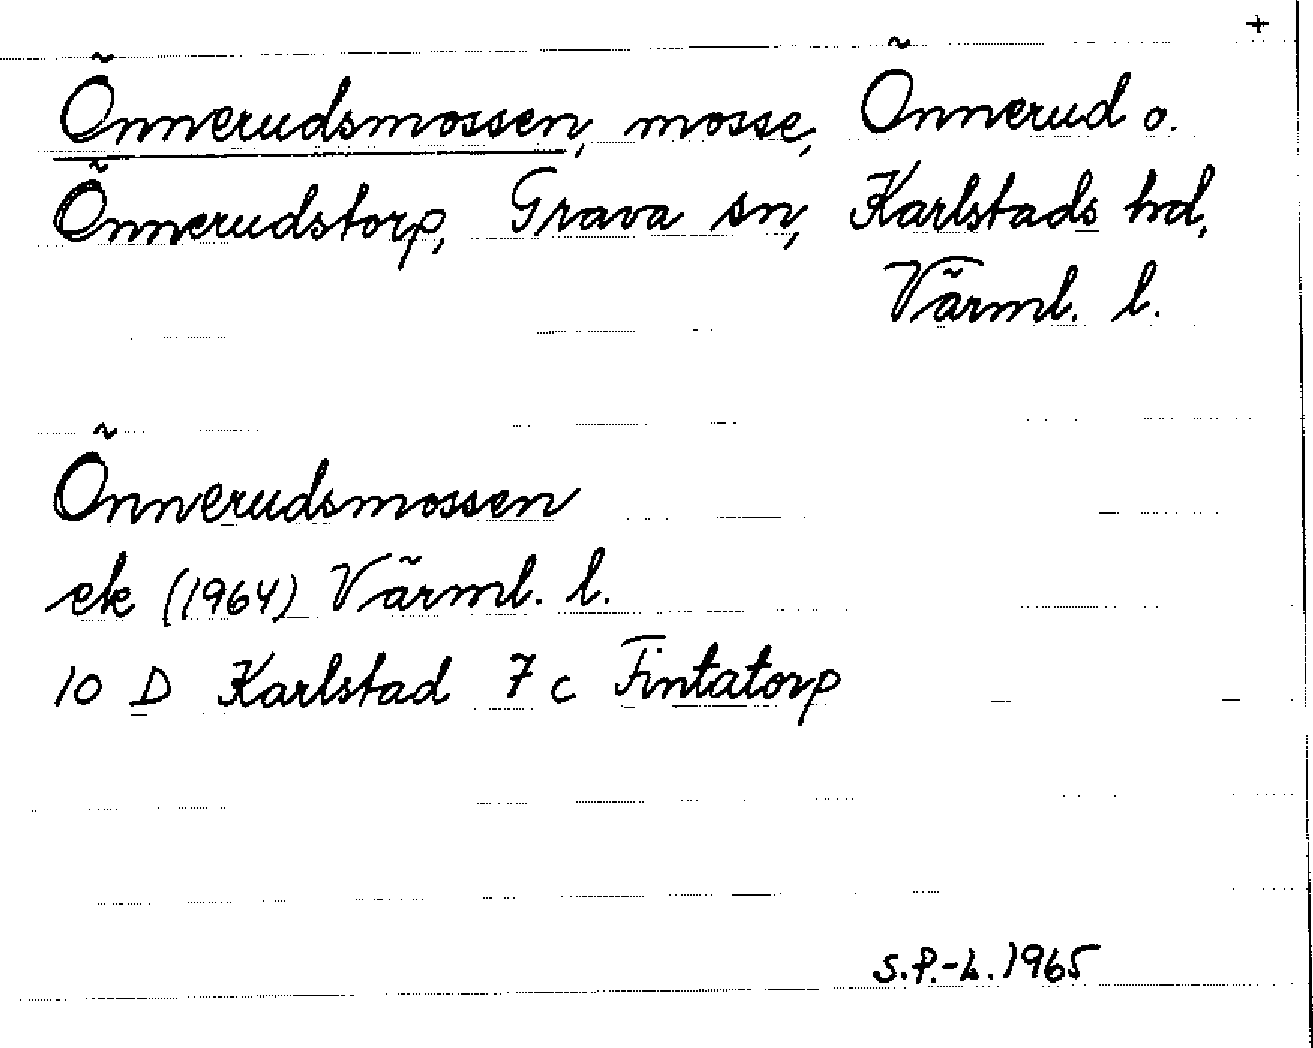 +
Önnerudsmossen, mosse, Önnerud o.
Önnerudstorp, Grava sn, Karlstads hd,
Värml. l.
Önnerudsmossen
ek (1964) Värml. l.
10 D Karlstad 7 c Fintatorp
S.P.-L. 1965